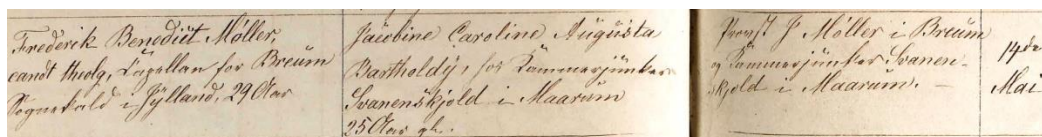 Frederik Benedict Møller,
candt theolg, Capellan for Breum
Sognekald i Jylland, 29 Aar
Jacobine Caroline Augusta
Bartholdy, hos Kammerjunker
Svanenskjold i Maarum
25 Aar gl.
Provst J Møller i Breum
og Kammerjunker Svanen-
skjold i Maarum. —
14de
Mai